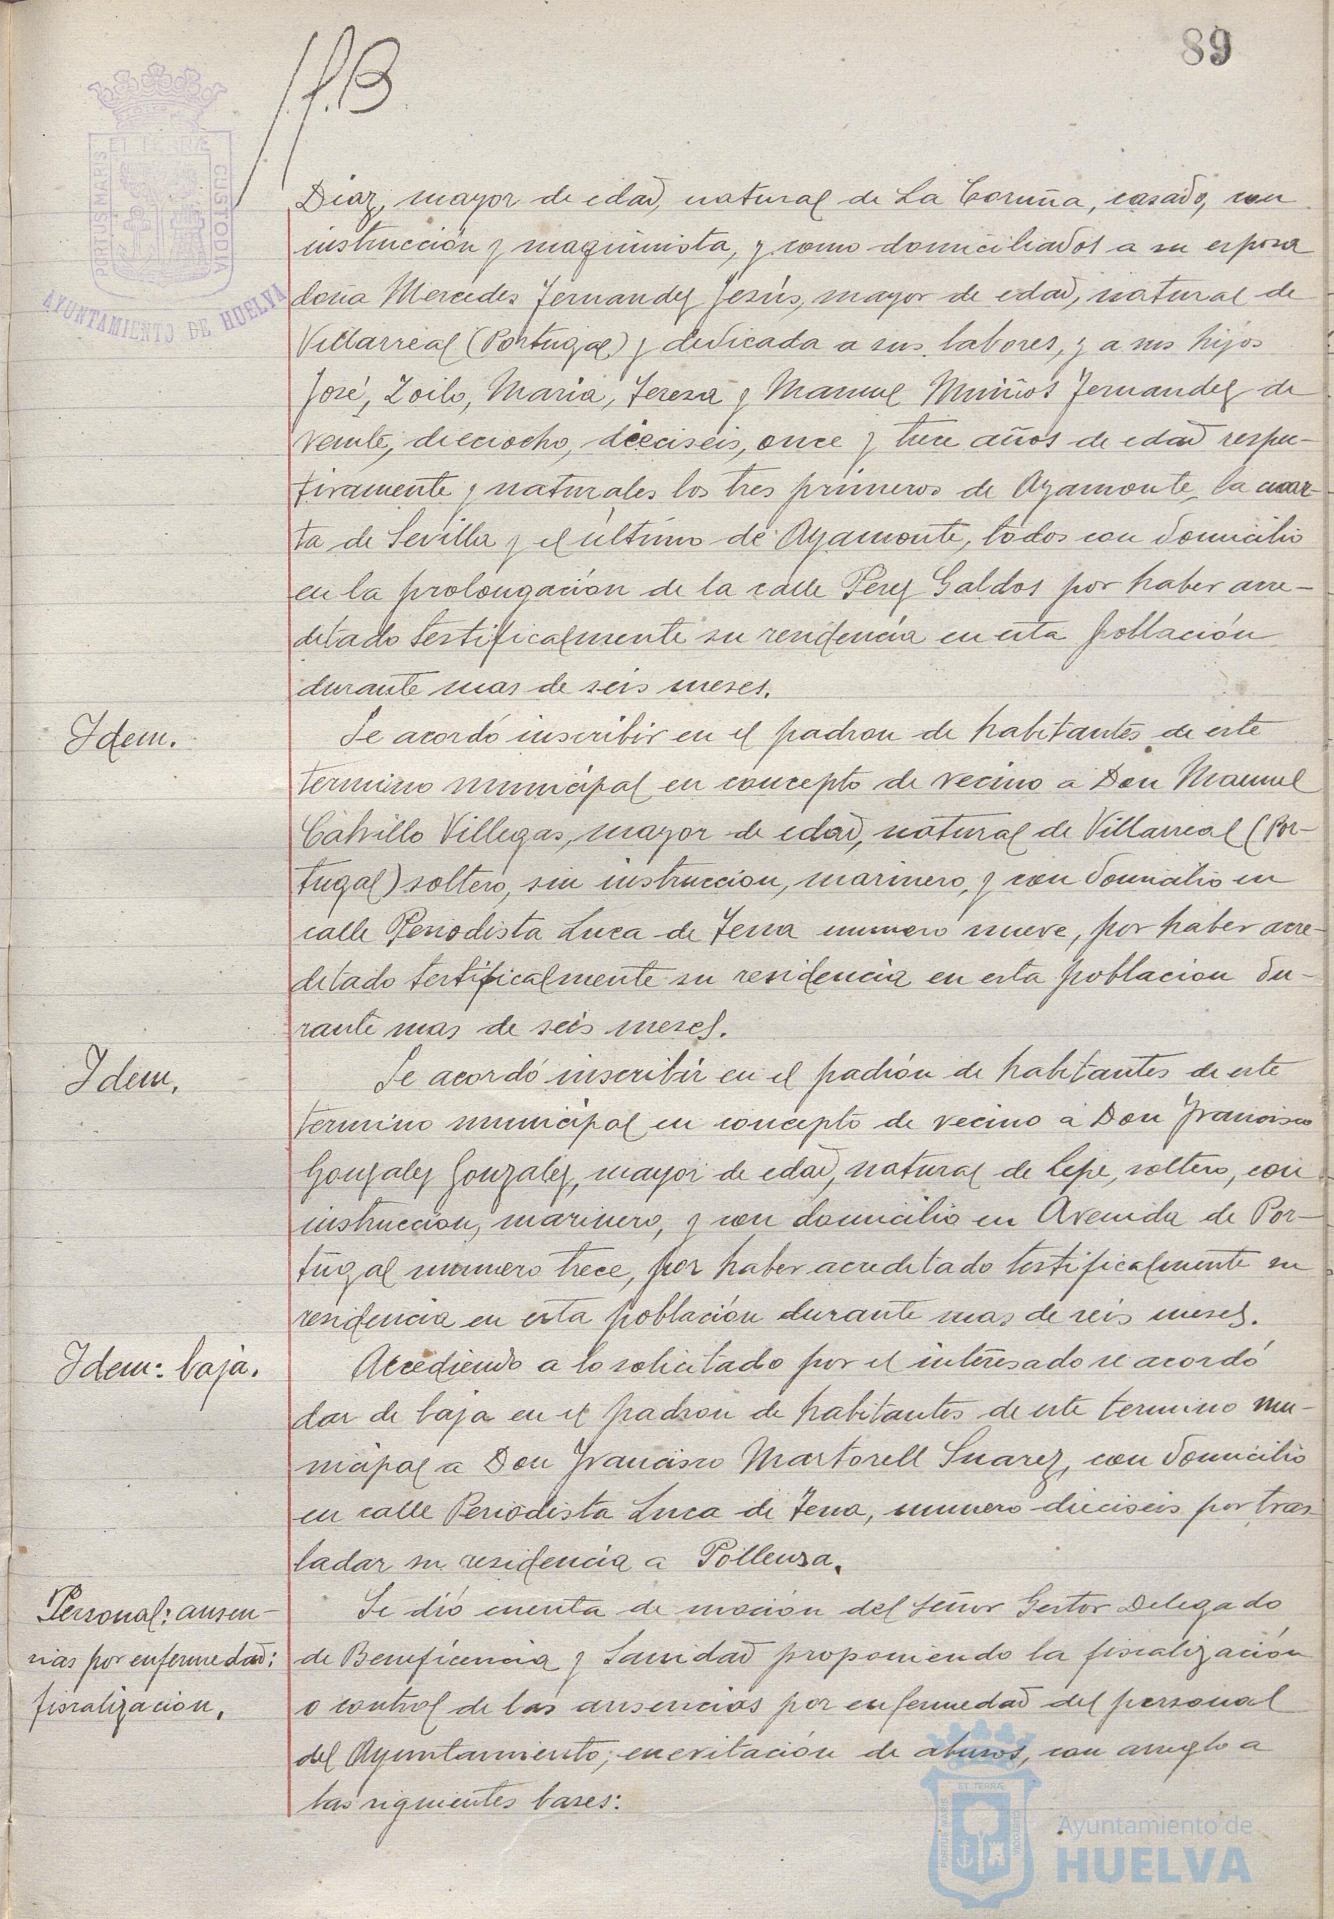 89
Diaz, mayor de edad, natural de La Coruña, casado, con
instrucción y maquinista, y como domiciliados a su esposa
doña Mercedes Fernandez Jesús, mayor de edad, natural de
Villarreal (Portugal) y dedicada a sus labores, y a sus hijos
José, Zoilo, Maria, Teresa y Manuel Muiños Fernandez de
veinte, dieciocho, dieciseis, once y trece años de edad respec-
tivamente y naturales los tres primeros de Ayamonte, la cuar-
ta de Sevilla y el último de Ayamonte, todos con domicilio
en la prolongación de la calle Perez Galdos por haber acre-
ditado testificalmente su residencia en esta población
durante mas de seis meses.
Idem.
Se acordó inscribir en el padron de habitantes de este
termino municipal en concepto de vecino a Don Manuel
Calvillo Villegas, mayor de edad, natural de Villarreal (Por-
tugal) soltero, sin instruccion, marinero, y con domicilio en
calle Periodista Luca de Tena numero nueve, por haber acre-
ditado testificalmente su residencia en esta poblacion du-
rante mas de seis meses.
Idem.
Se acordó inscribir en el padrón de habitantes de este
termino municipal en concepto de vecino a Don Francisco
Gonzalez Gonzalez, mayor de edad, natural de Lepe, soltero, con
instruccion, marinero, y con domicilio en Avenida de Por-
tugal numero trece, por haber acreditado testificalmente su
residencia en esta población durante mas de seis meses.
Idem: baja.
Accediendo a lo solicitado por el interesado se acordó
dar de baja en el padron de habitantes de este termino mu-
nicipal a Don Francisco Martorell Suarez, con domicilio
en calle Periodista Luca de Tena, numero dieciseis por tras
ladar su residencia a Pollensa.
Personal: ausen-
cias por enfermedad:
fiscalizacion.
Se dió cuenta de mocion del señor Gestor Delegado
de Beneficencia y Sanidad proponiendo la fiscalización
o control de las ausencias por enfermedad del personal
del Ayuntamiento; en evitación de abusos, con arreglo a
las siguientes bases:
PORTUS MARIS ET TERRÆ CUSTODIA
AYUNTAMIENTO DE HUELVA
PORTUS MARIS ET TERRÆ CUSTODIA
Ayuntamiento de
HUELVA